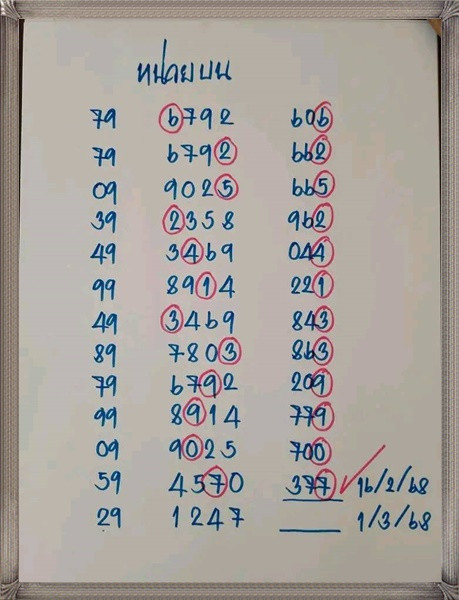 หน่วยบน
79 6792 606
79 6792 662
09 9025 665
39 2358 962
49 3469 044
99 8914 221
49 3469 843
89 7803 863
79 6792 209
99 8914 779
09 9025 700
59 4570 377 16/2/68
29 1247 ____ 1/3/68